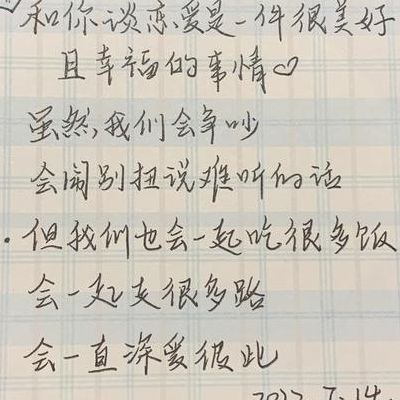 和你谈恋爱是一件很美好
且幸福的事情♡
虽然,我们会争吵
会闹别扭说难听的话
·但我们也会一起吃很多饭
会一起走很多路
会一直深爱彼此